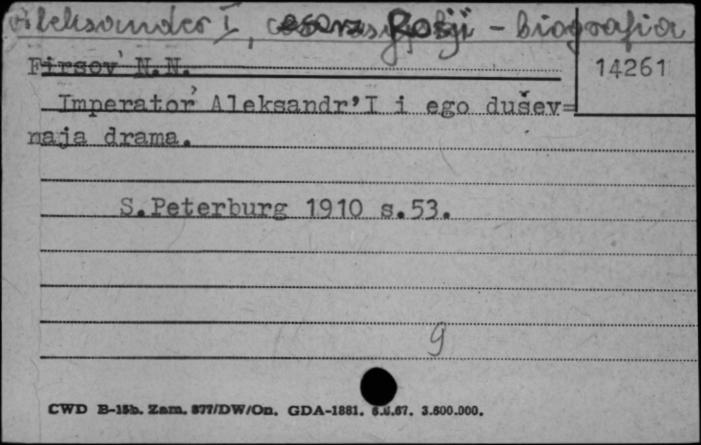 Aleksander I, Rosji - biografia
Firsov N.N.
14261
Imperator' Aleksandr'I i ego dušev=
naja drama.
S.Peterburg 1910 s.53.
9
CWD B-15b. Zam. 877/DW/On. GDA-1881. 6.6.67. 3.600.000.